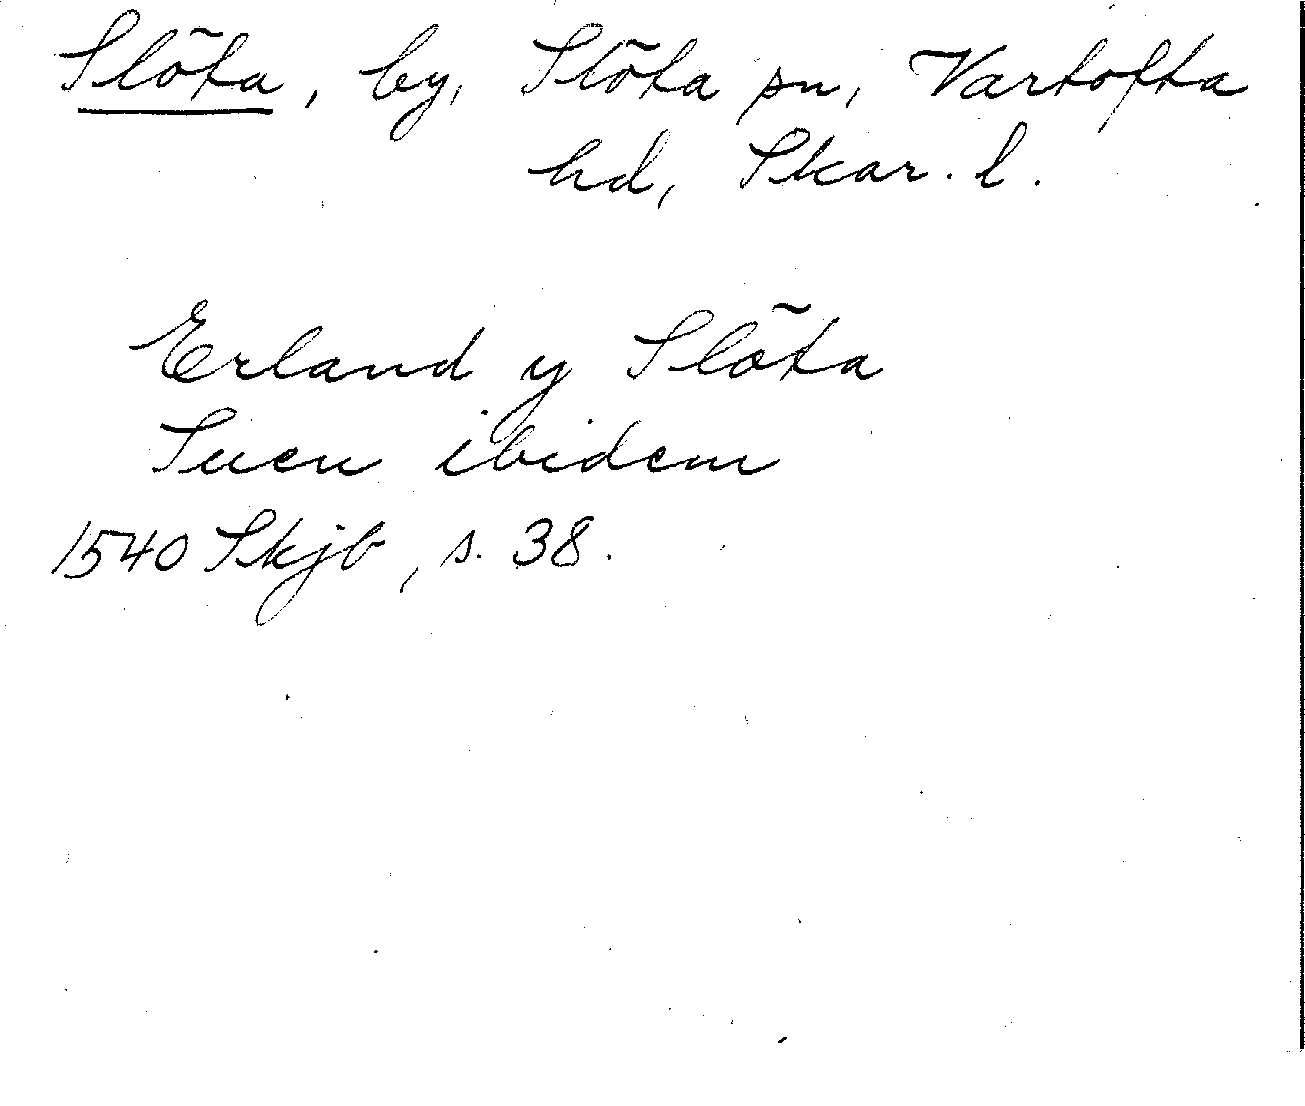 Slöta, by, Slöta sn, Vartofta
hd, Skar. l.
Erland y Slöta
Suen ibidem
1540 Skjb, s. 38.